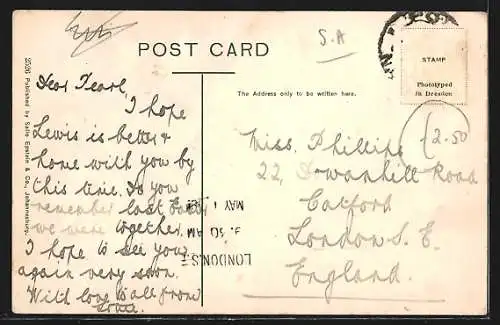 S.A
POST CARD
STAMP
Phototyped
in Dresden
The Address only to be written here.
25135 Published by Sallo Epstein & Co., Johannesburg.
Dear Pearl,
I hope
Lewis is better &
home with you by
this time. Do you
remember last Easter
we were together,
I hope to see you
again very soon.
With love to all from
(2.50
Miss. Phillips
22, Swanhill Road
Catford
London S. E.
England.
LONDON S.E
3. 30 AM
MAY 1